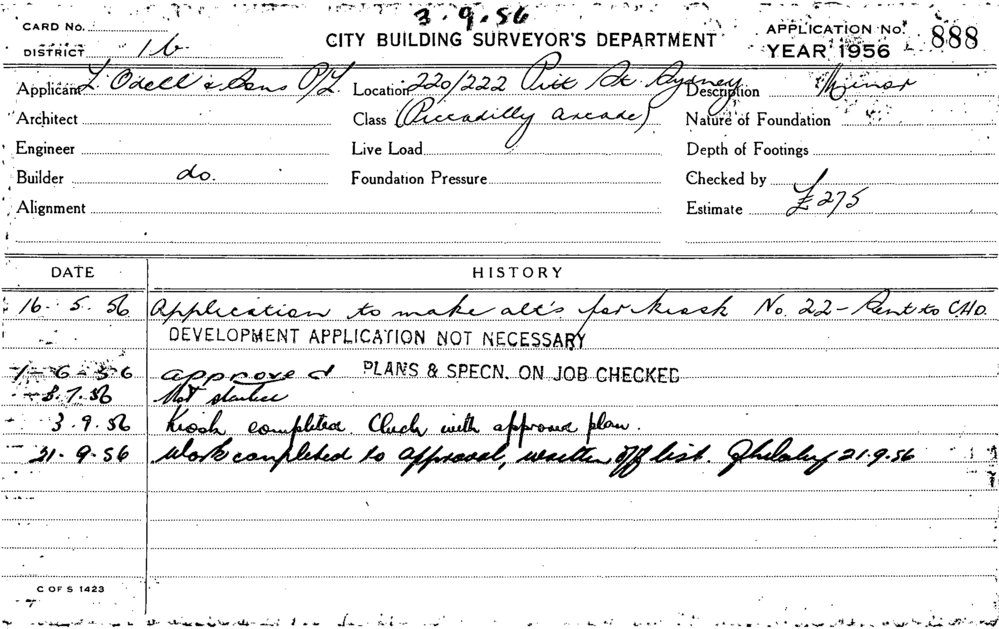 3.9.56
CARD No.
CITY BUILDING SURVEYOR'S DEPARTMENT
APPLICATION No. 888
DISTRICT 16
YEAR 1956
Applicant L. Odell & Sons P/L. Location 220/222 Pitt St. Sydney Description Minor
Architect Class (Piccadilly arcade) Nature of Foundation
Engineer Live Load Depth of Footings
Builder do. Foundation Pressure Checked by
Alignment Estimate £275
DATE HISTORY
16.5.56 Application to make alt's for kiosk No. 22 -
DEVELOPMENT APPLICATION NOT NECESSARY
1-6-56 approved PLANS & SPECN. ON JOB CHECKED
3.7.56 Not started
3.9.56 Kiosk completed. Check with approved plan.
21.9.56 Work completed to approval, written off list. 21.9.56
C OF S 1423